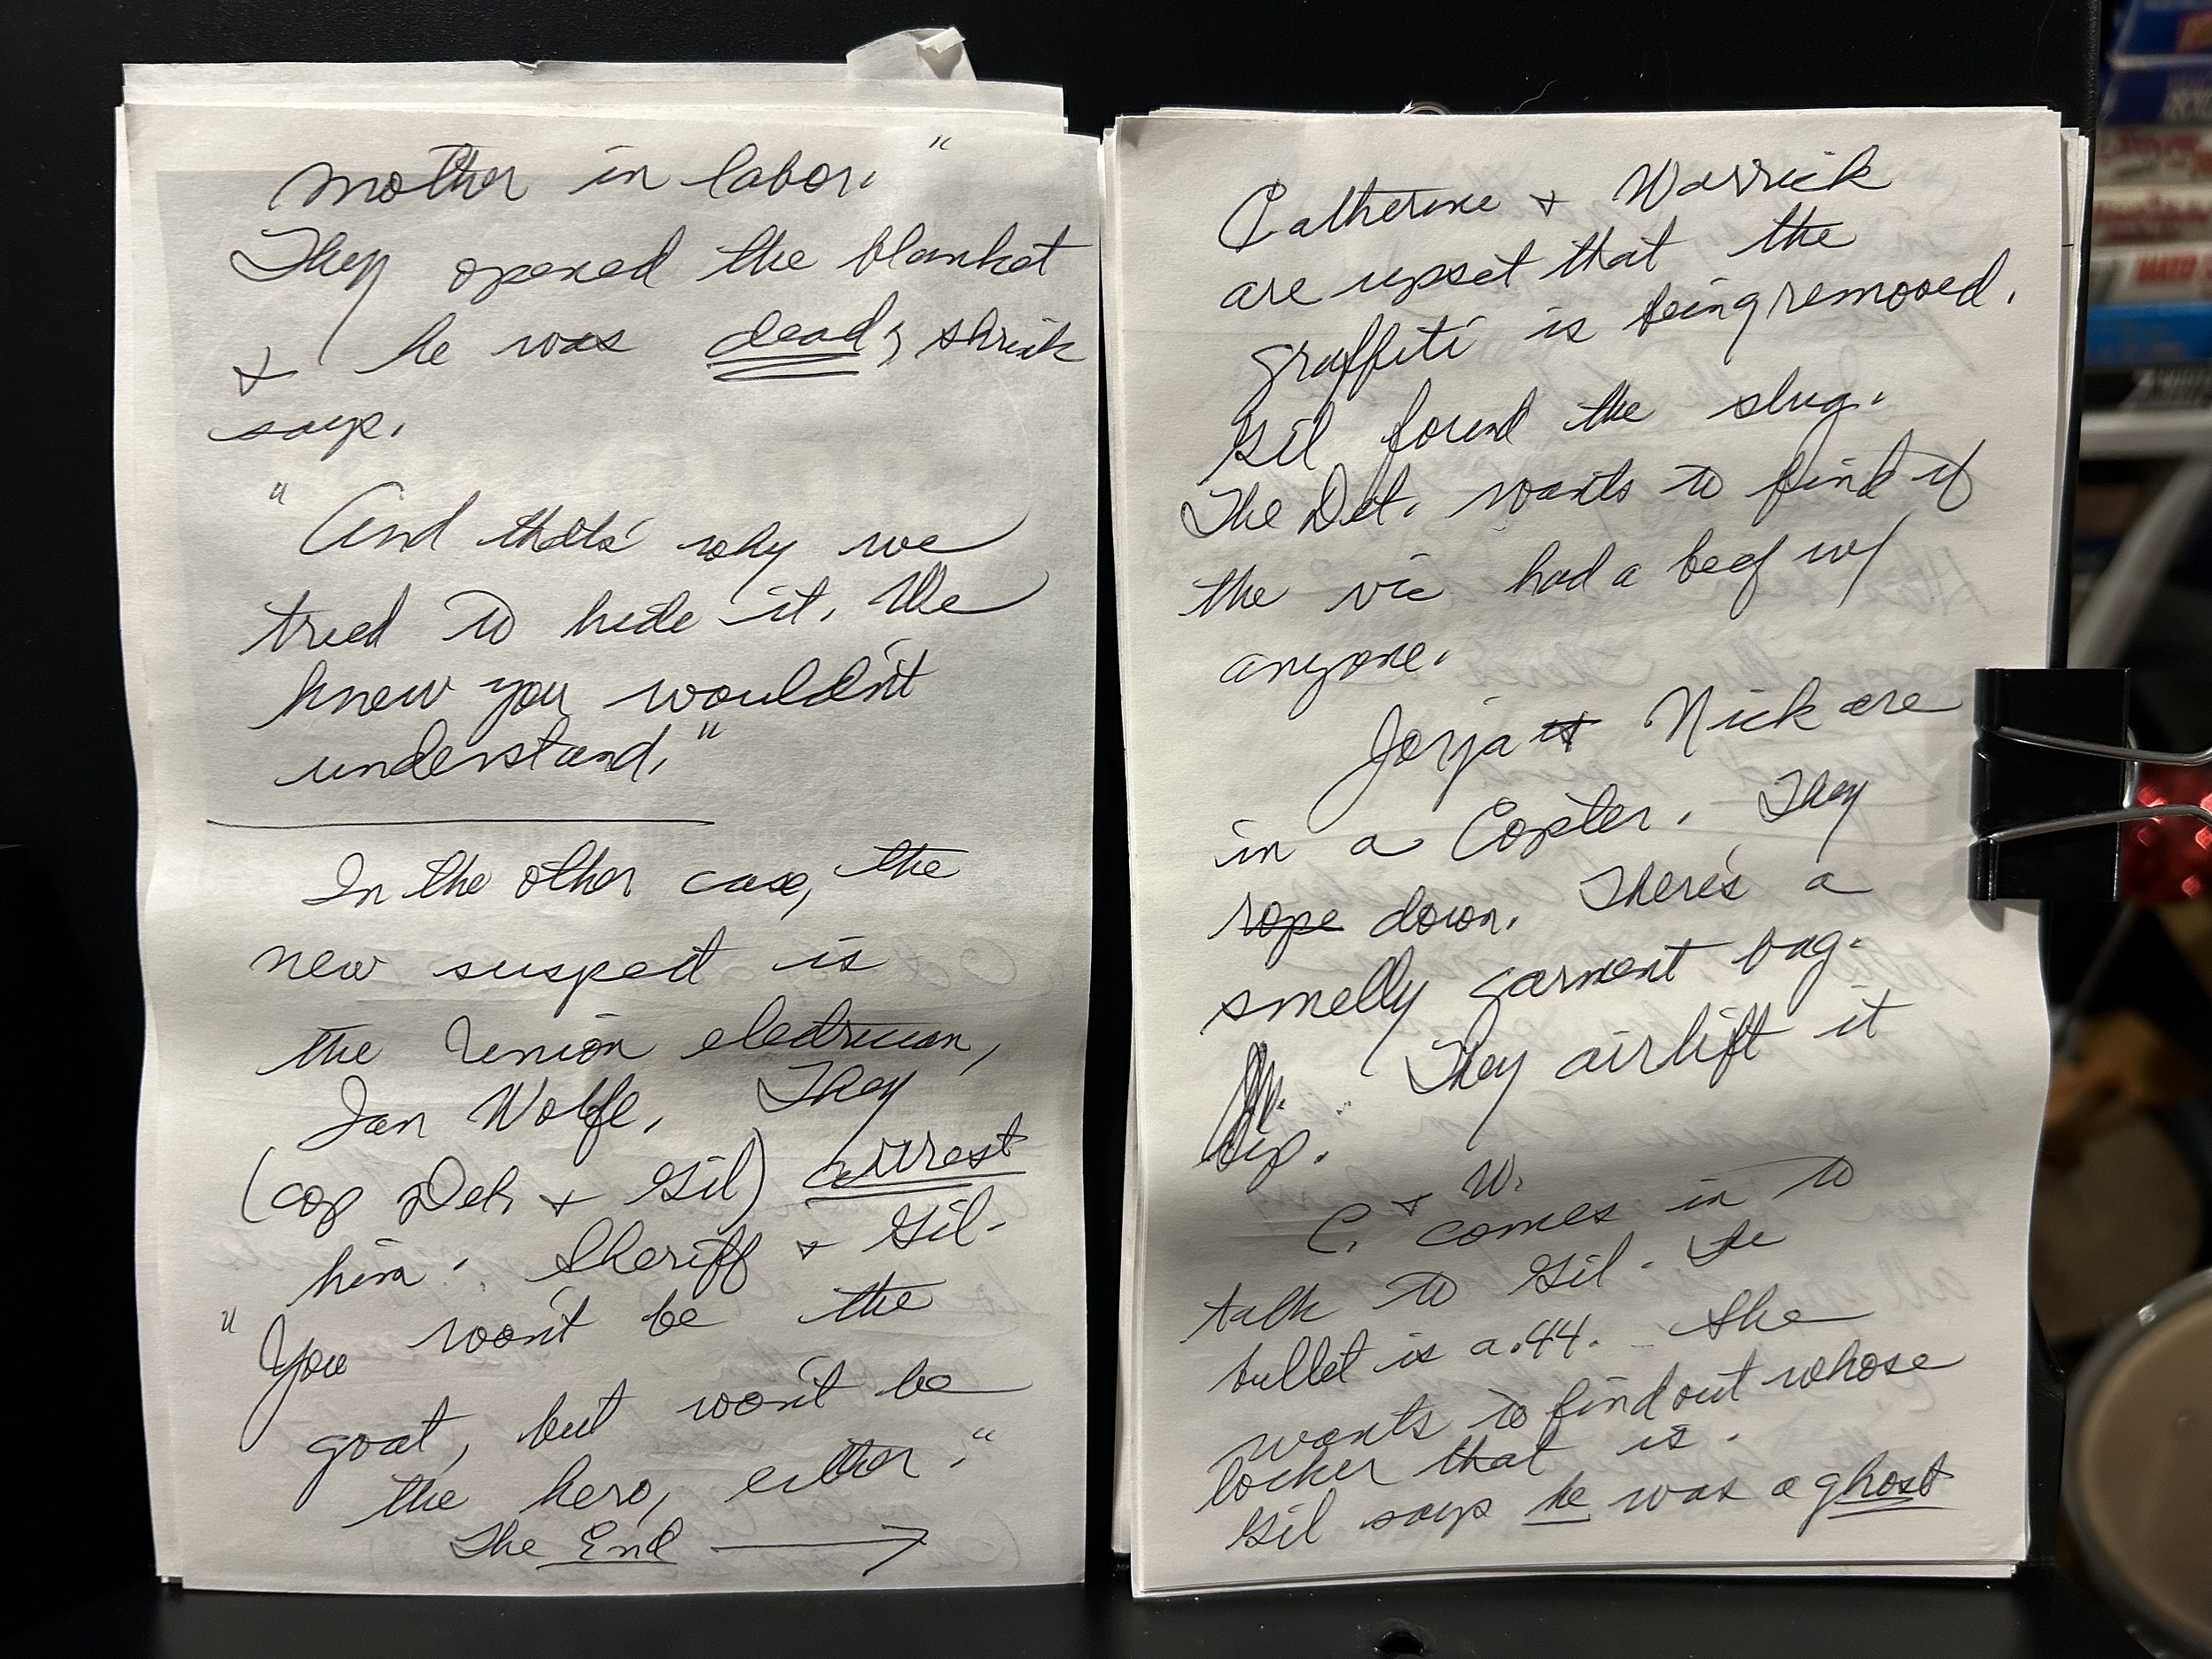 mother in labor."
They opened the blanket
& he was dead, shrink
says.
"And that's why we
tried to hide it. We
knew you wouldn't
understand."
In the other case, the
new suspect is
the Union electrician,
Ian Wolfe. They
(cop Det. & Gil) arrest
him. Sheriff & Gil-
"You won't be the
goat, but won't be
the hero, either."
The End
Catherine & Warrick
are upset that the
graffiti is being removed.
Gil found the slug.
The Det. wants to find if
the vic had a beef w/
anyone.
Jorja & Nick are
in a Copter. They
rope down. There's a
smelly garment bag.
They airlift it
up.
C. & W. comes in to
talk to Gil. The
bullet is a .44. She
wants to find out whose
locker that is.
Gil says he was a ghost